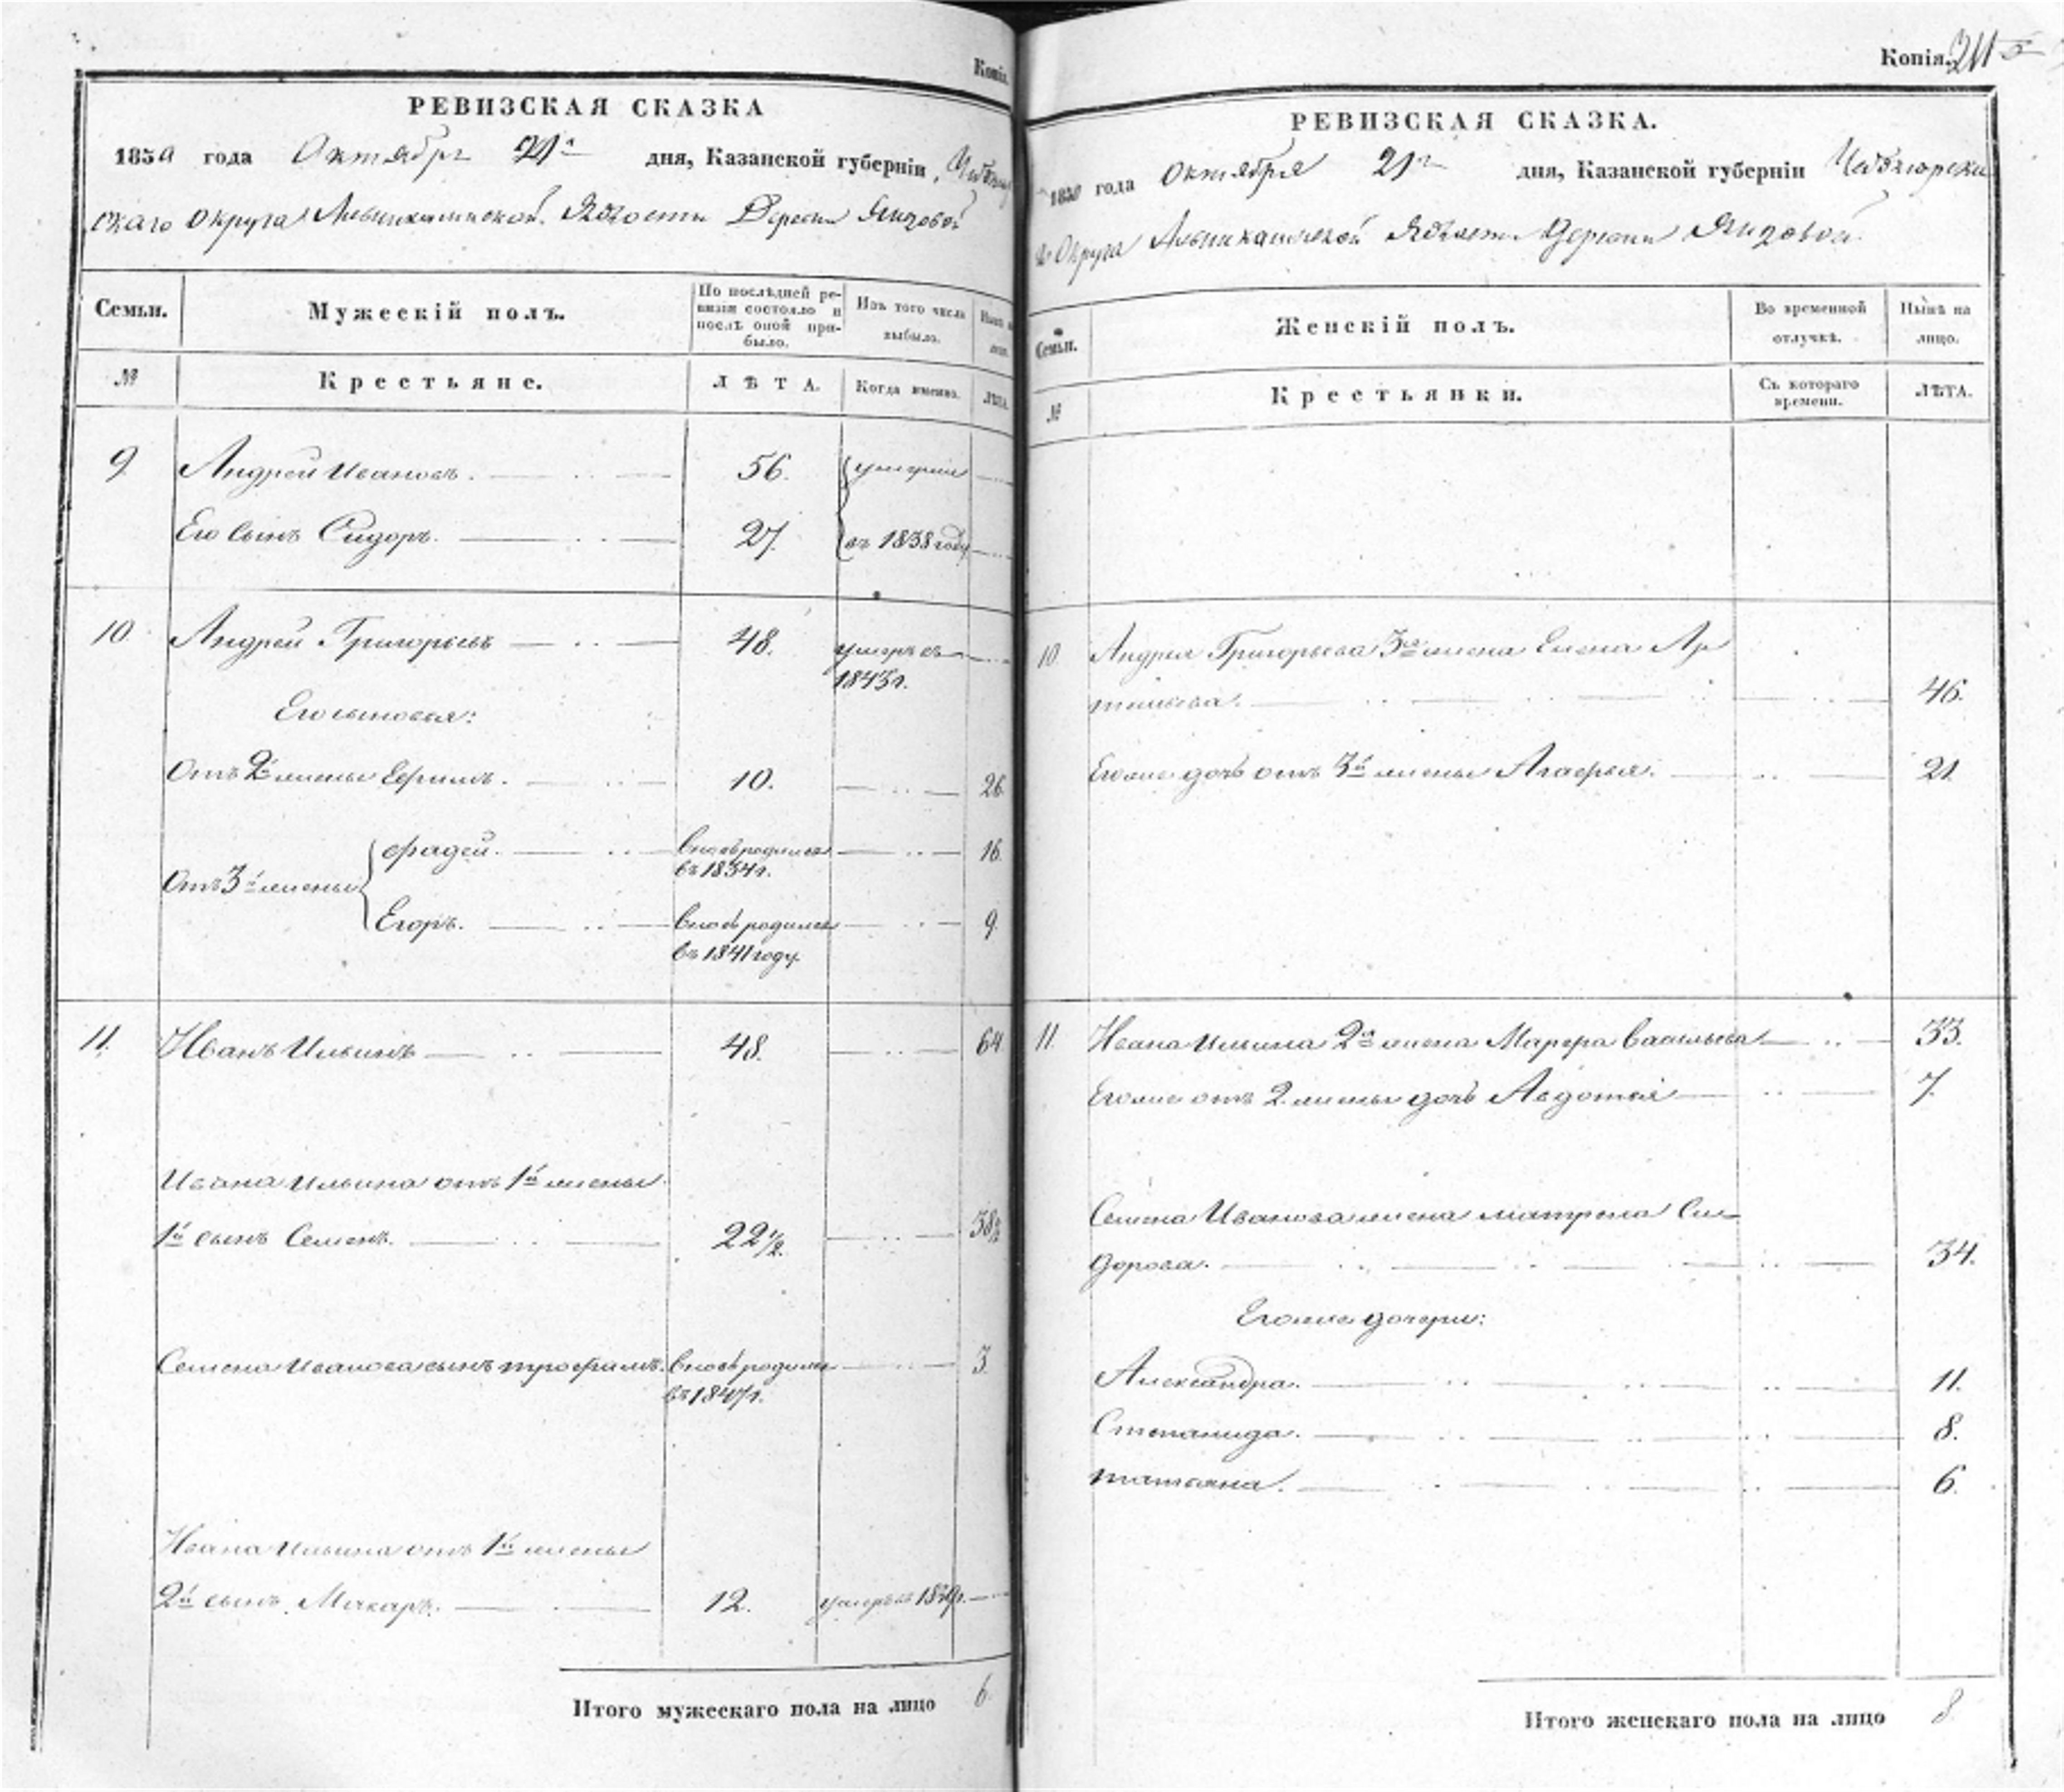 Копія.
РЕВИЗСКАЯ СКАЗКА
1850 года Октября 21го дня, Казанской губерніи,
скаго Округа Деревни
Семьи.
Мужескій полъ.
По послѣдней ре-
визіи состояло и
послѣ оной при-
было.
Изъ того числа
выбыло.
№
Крестьяне.
ЛѢТА.
Когда именно.
ЛѢТА.
9. Андрей Ивановъ. 56. умерли
Его сынъ Сидоръ. 27. въ 1838 году
10. Андрей Григорьевъ 48. умеръ въ
1843 г.
Его сыновья:
Отъ 2й жены Ефимъ. 10. 26.
Фадей. вновь родился 16.
въ 1834 г.
Отъ 3й жены
Егоръ. вновь родился 9.
въ 1841 году.
11. Иванъ Ильинъ 48. 64.
Ивана Ильина отъ 1й жены
1й сынъ Семенъ. 22 1/2. 38 1/2
Семена Иванова сынъ Трофимъ. вновь родился 3.
въ 1847 г.
Ивана Ильина отъ 1й жены
2й сынъ Макаръ. 12. умеръ въ
Итого мужескаго пола на лицо 6.
Копія.
РЕВИЗСКАЯ СКАЗКА.
1850 года Октября 21го дня, Казанской губерніи
Округа Деревни
Семьи.
Женскій полъ.
Во временной
отлучкѣ.
Нынѣ на
лицо.
№
Крестьянки.
Съ котораго
времени.
ЛѢТА.
10. Андрея Григорьева 3я жена Елена Ар
темьева. 46.
Его же дочь отъ 3й жены Агафья. 21.
11. Ивана Ильина 2я жена Марфа Васильева 33.
Его же отъ 2 жены дочь Авдотья 7.
Семена Иванова жена Матрена Си-
дорова. 34.
Его же дочери:
Александра. 11.
Степанида. 8.
Татьяна. 6.
Итого женскаго пола на лицо 8